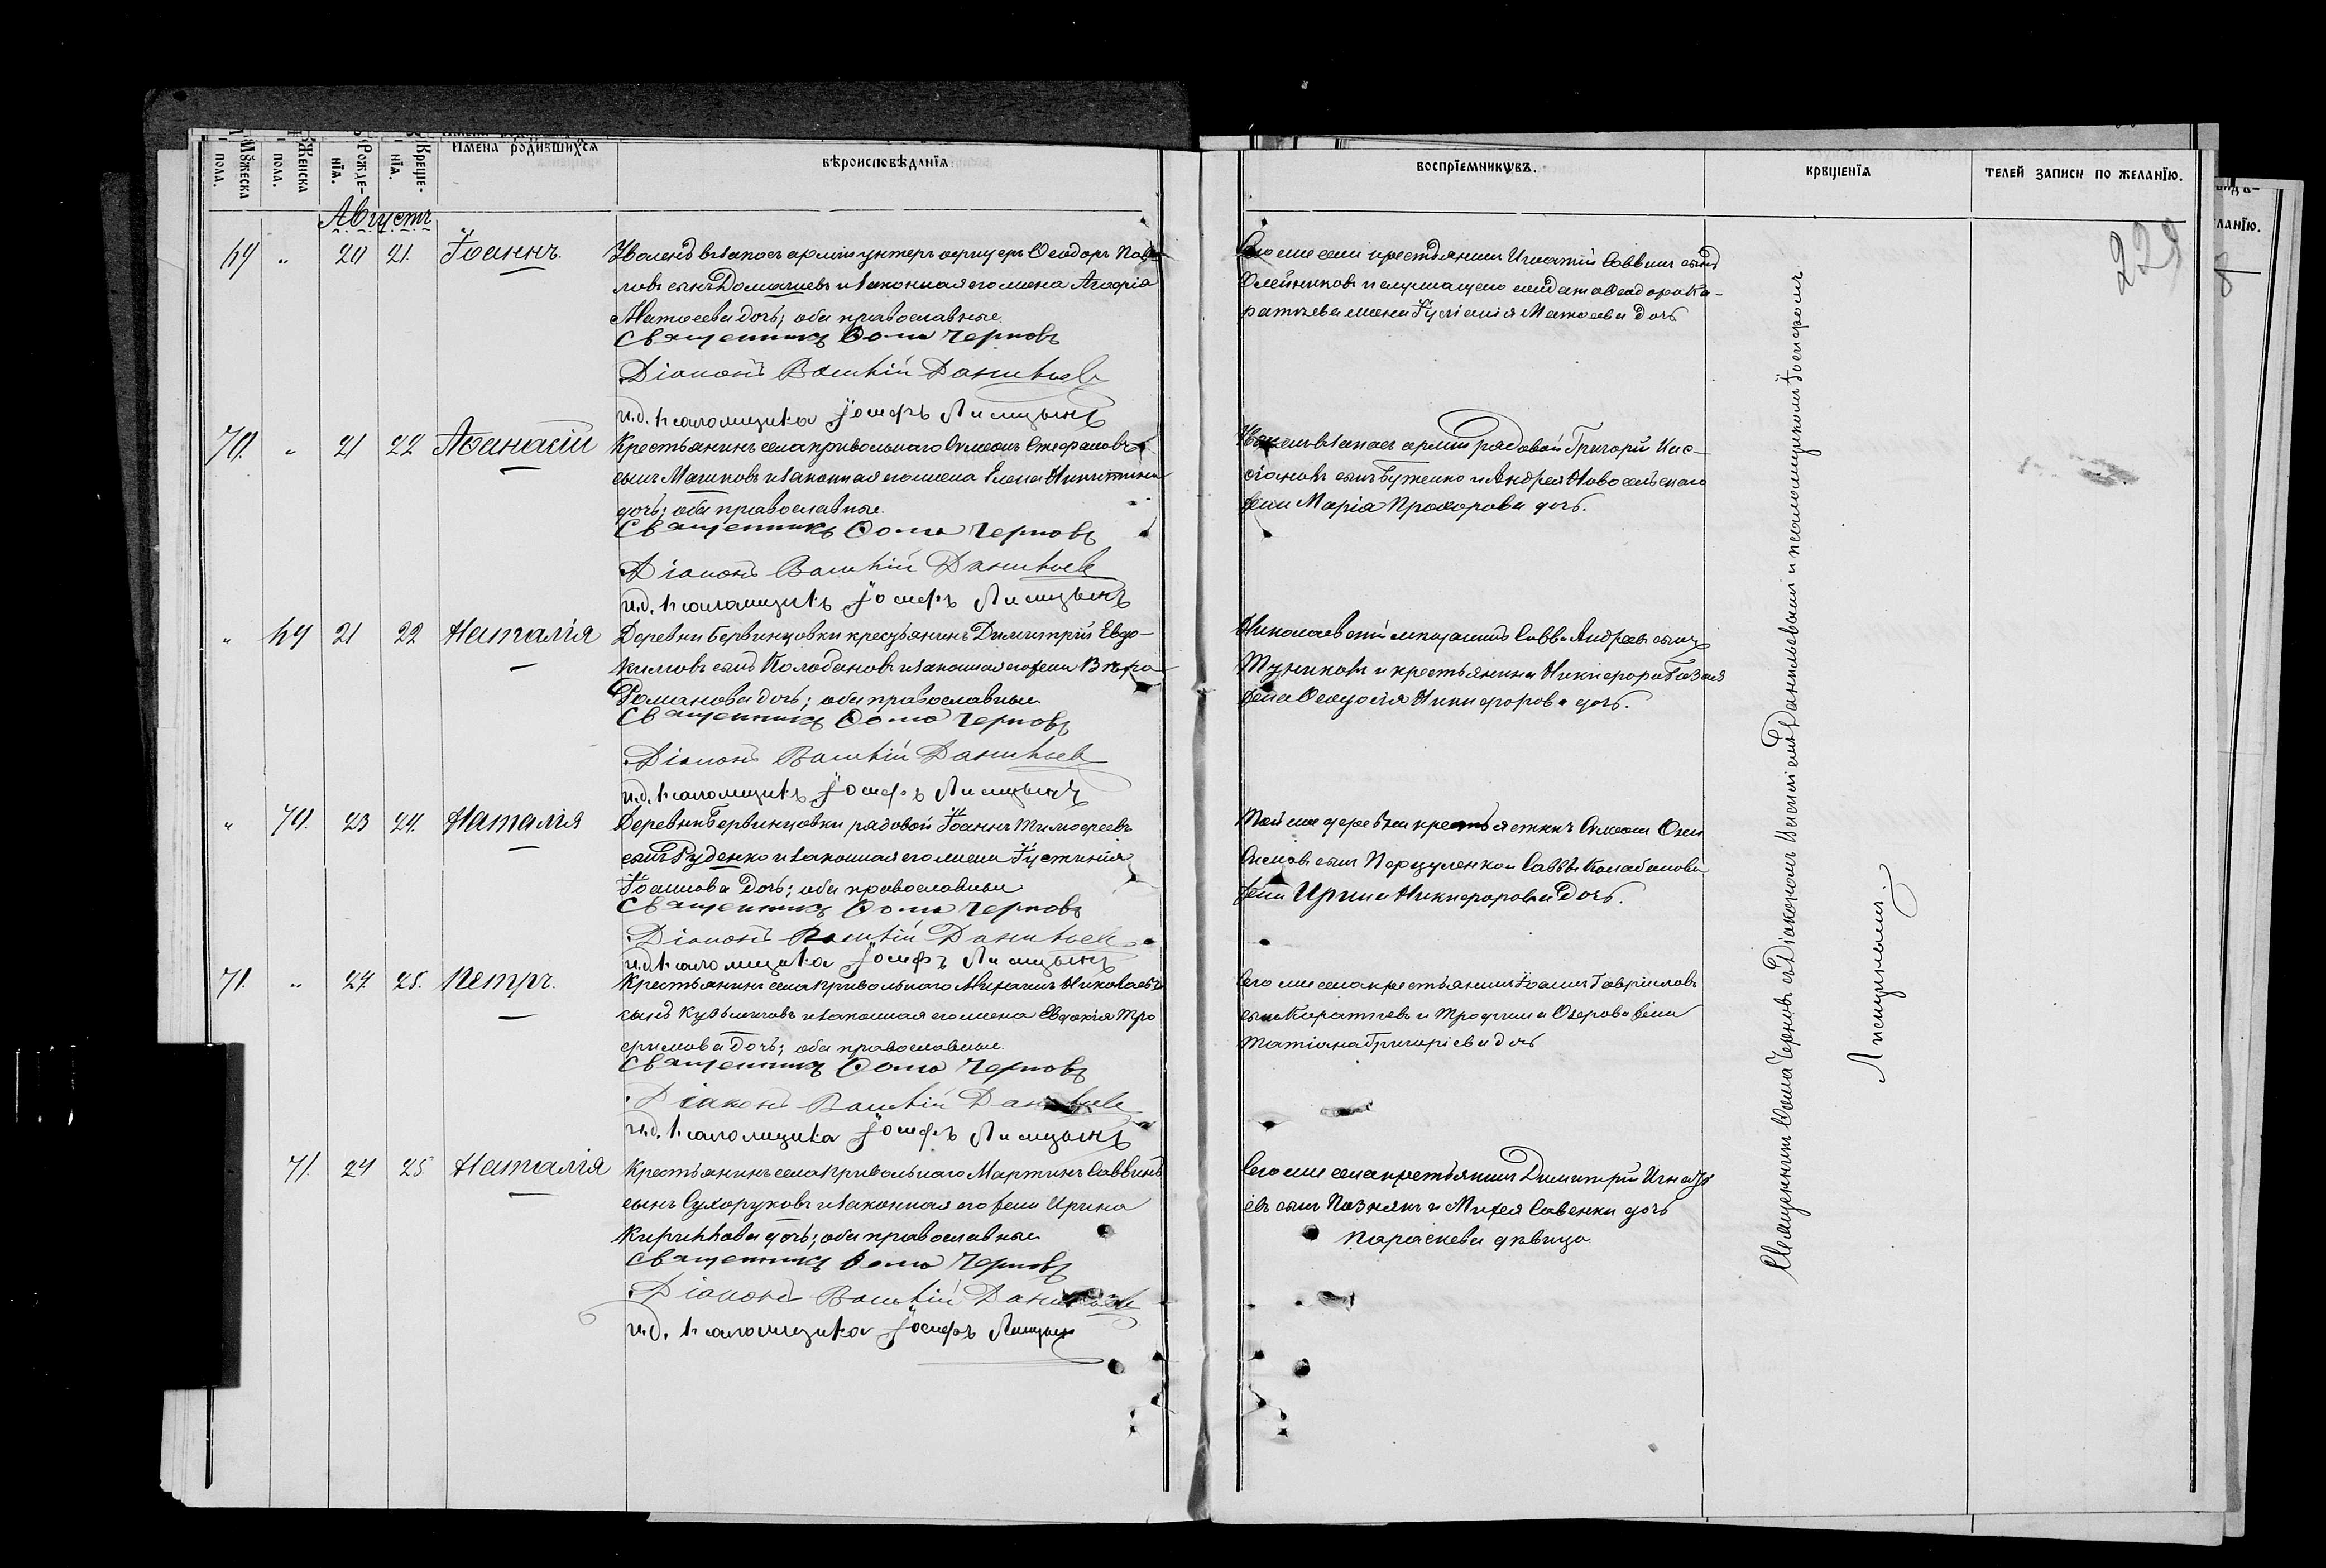 Мужеска пола.
Женска пола.
Рожденія.
Крещенія.
Имена родившихся
вѣроисповѣданія
воспріемниковъ.
крещенія
телей записи по желанію.
229
Августъ
69 " 20 21. Іоаннъ.
Уволенъ въ запасъ арміи унтеръ офицеръ Ѳеодоръ Пав
ловъ сынъ и законная его жена Агафія
Матѳеева дочь; оба православные.
Священникъ Ѳома Черновъ
Діаконъ Василій Данильевъ
и.д. псаломщика Іосифъ Липицынъ
сего же села крестьянинъ Игнатій Саввинъ сынъ
Олейниковъ и служащаго солдата Ѳеодора Ка-
ратѣева жена Матѳеева дочь
70. " 21 22 Аѳанасій
Крестьянинъ села Привольнаго Симеонъ Стефановъ
сынъ и законная его жена Елена Никитина
дочь; оба православные.
Священникъ Ѳома Черновъ
Діаконъ Василій Данильевъ
и.д. псаломщикъ Іосифъ Липицынъ
въ запасъ арміи рядовой Григорій Кас-
сіановъ сынъ Буженко и Андрея Новосельскаго
жена Марія Прохорова дочь.
" 69 21 22 Наталія
Деревни Бервинцовки крестьянинъ Димитрій Евдо-
кимовъ сынъ Колобановъ и законная его жена Вѣра
Романова дочь; оба православные
Священникъ Ѳома Черновъ
Діаконъ Василій Данильевъ
и.д. псаломщикъ Іосифъ Липицынъ
Николаевскій мѣщанинъ Савва Андреевъ сынъ
и крестьянина Никифора
жена Ѳеодосія Никифорова дочь.
" 70. 23 24. Наталія
Деревни Бервинцовки рядовой Іоаннъ Тимоѳеевъ
сынъ Руденко и законная его жена Іустинія
Іоаннова дочь; оба православные
Священникъ Ѳома Черновъ
Діаконъ Василій Данильевъ
и.д. псаломщика Іосифъ Липицынъ
Той же деревни крестьянинъ Симеонъ Они
симовъ сынъ и Саввы Колобанова
жена Ирина Никифорова дочь.
71. " 24 25. Петръ.
Крестьянинъ села Привольнаго Михаилъ Николаевъ
сынъ Кузьминовъ и законная его жена Евдокія Тро
фимова дочь; оба православные.
Священникъ Ѳома Черновъ
Діаконъ Василій Данильевъ
и.д. псаломщика Іосифъ Липицынъ
сего же села крестьянинъ Іоаннъ Гавріиловъ
сынъ Каратѣевъ и Трофима Озерова жена
Татіана Григоріева дочь
71. 24 25 Наталія
Крестьянинъ села Привольнаго Мартинъ Саввинъ
сынъ Сухоруковъ и законная его жена Ирина
Кириллова дочь; оба православные
Священникъ Ѳома Черновъ
Діаконъ Василій Данильевъ
и.д. псаломщика Іосифъ Липицынъ
сего же села крестьянинъ Димитрій Игнать
евъ сынъ Познякъ и Михея Савенки дочь
Параскева дѣвица
Священникъ Ѳома Черновъ съ Діакономъ Василіемъ Данильевымъ и псаломщикомъ Іосифомъ
Липицынымъ